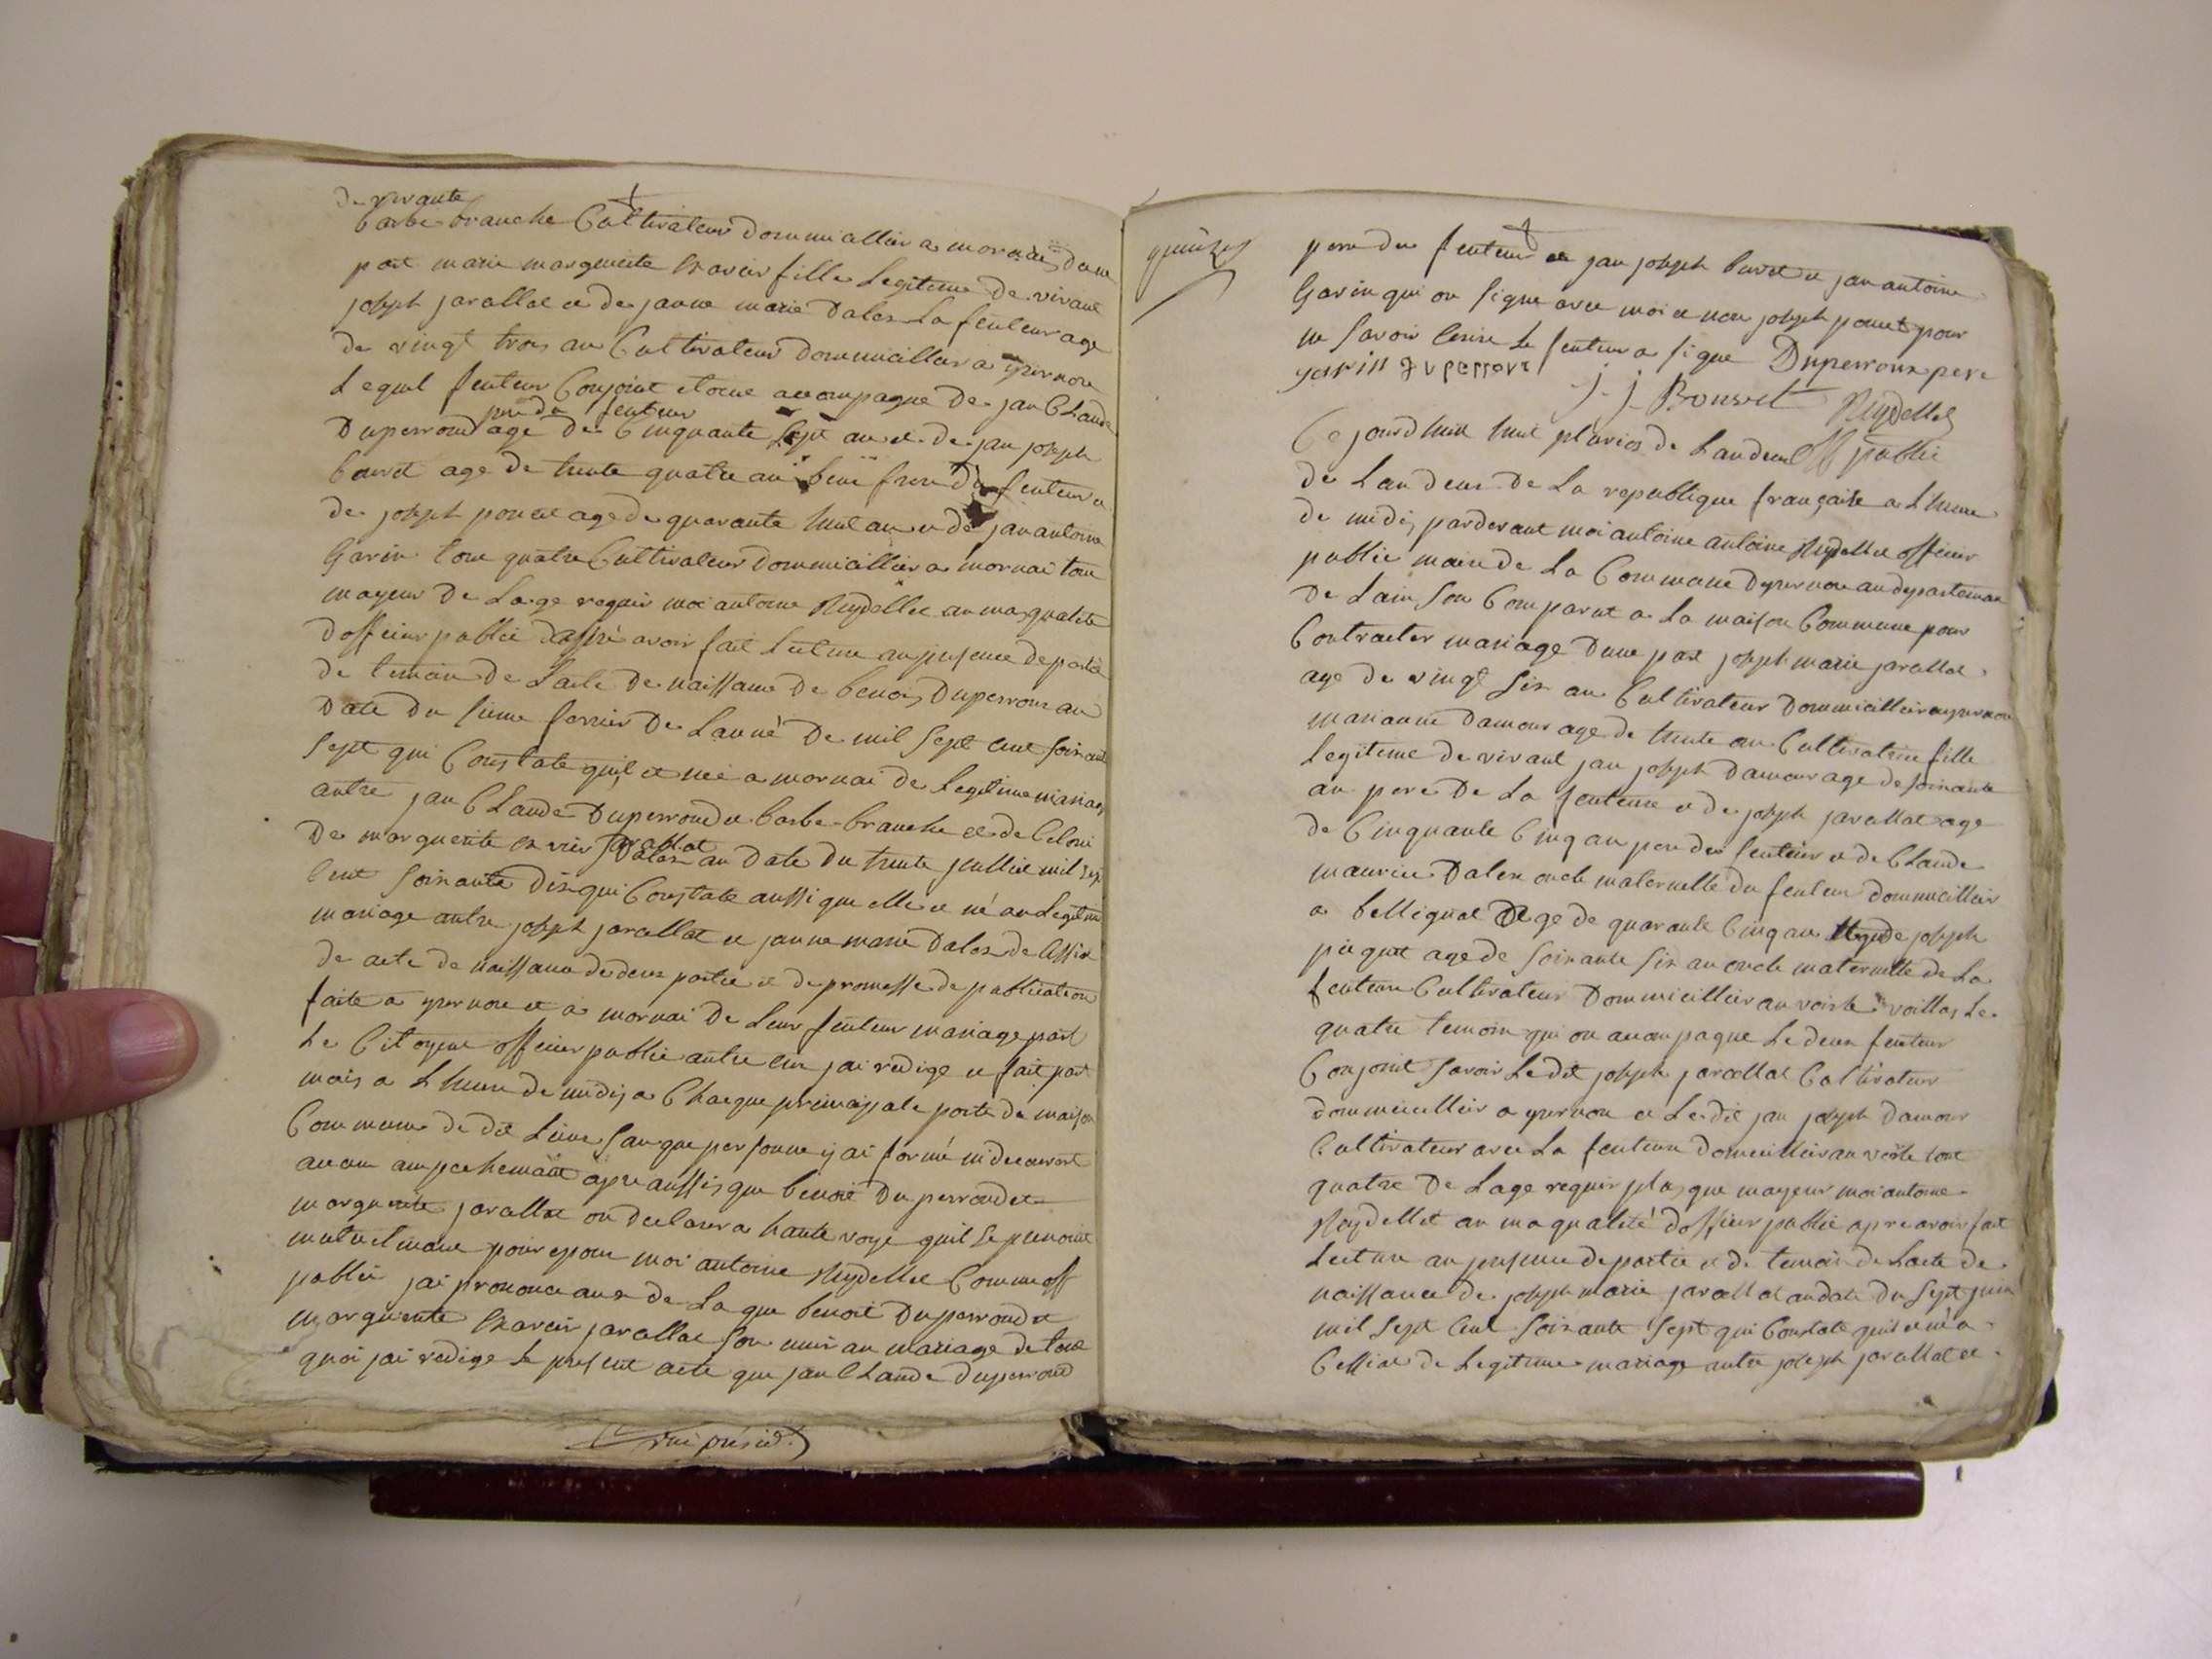 de vivante
barbe branche Cultivateur dommicillier a mornai dune
part marie marguerite Xavier fille Legiteme de vivant
joseph jarallat et de janne marie Dalex La feuteur age
de vingt trois an Cultivateur dommicillier a
Lequel feuteur Conjoint etoint acompagne de jan Claude
pere du feuteur
Duperrond age de Cinquante Sept an et de jan joseph
bouvet age de trente quatre an frere du feuteur et
de joseph poncet age de quarante huit an et de jan antoine
Garin tou quatre Cultivateur dommicillier a mornai tou
mayeur de Lage requis moi antoine Reydellet an ma qualite
dofficier public apre avoir fait Lecture an presence de partie
de temoin de Lacte de naissance de benoi Duperroux an
Date du fevrier de Lanné de mil Sept cent soixante
Sept qui Constate quil et né a mornai de Legitime mariage
antre jan Claude Duperroud et barbe branche et de Celui
jarallat
De marguerite Xavier Dalex an date du trente juillet mil Sept
Cent Soixante dix qui Constate aussi que elle et né an Legitime
mariage antre joseph jarallat et janne marie Dalex de
de acte de naissance de deux partie et de promesse de publication
faite a et a mornai de Leur feuteur mariage part
Le Citoyent officier public antre eux jai redige et fait part
mais a Lheure de midi a Chaque principale porte de maison
Commune de dit Lieux San que personne y ai formé ni decouvert
aucun ampechemant apre aussi que benoit Duperroud et
marguerite jarallat on declarer a haute voye quil Se prenoint
mutuelmant pour epoux moi antoine Reydellet Comme off
public jai prononce aux de La que benoit Duperroud et
marguerite Xavier jarallat Son unis an mariage de tout
quoi jai redige Le present acte que jan Claude Duperroud
quinze
pere du feuteur et jan joseph bouvet et jan antoine
Garin qui on Signe avec moi et non joseph poncet pour
ne Savoir Ecrire Le feuteur a Signe Duperroux pere
garin duperrou
j. j. Bouvet Reydellet
off public
Ce jourdhui huit pluvios de Landeux
de Lan deux de La republique française a Lheure
de midi, pardevant moi antoine antoine Reydellet officier
public maire de La Commune au departeman
de Lain Son Comparut a La maison Commune pour
Contracter mariage dune part joseph marie jarallat
age de vingt Six an Cultivateur dommicillier
marianne damour age de trente an Cultivatrice fille
Legiteme de vivant jan joseph damour age de Soixante
an pere de La feuteure et de joseph jarallat age
de Cinquante Cinq an pere du feuteur et de Claude
maurice Dalex oncle maternelle du feuteur dommicillier
a bellignat age de quarante Cinq an et de joseph
piquet age de Soixante Six an oncle maternelle de La
feuteure Cultivateur Dommicillier au voisle Le
quatre temoin qui on acompagne Le deux feuteur
Conjoint Savoir Ledit joseph jarallat Cultivateur
dommicillier a et Ledit jan joseph damour
Cultivateur avec La feuteure domicillier au voisle tout
quatre de Lage requis plus que mayeur moi antoine
Reydellet an ma qualité dofficier public apre avoir fait
Lecture an presence de partie et de temoin de Lacte de
naissance de joseph marie jarallat an date du Sept juin
mil Sept Cent Soixante Sept qui Constate quil et né a
de Legitime mariage antre joseph jarallat et